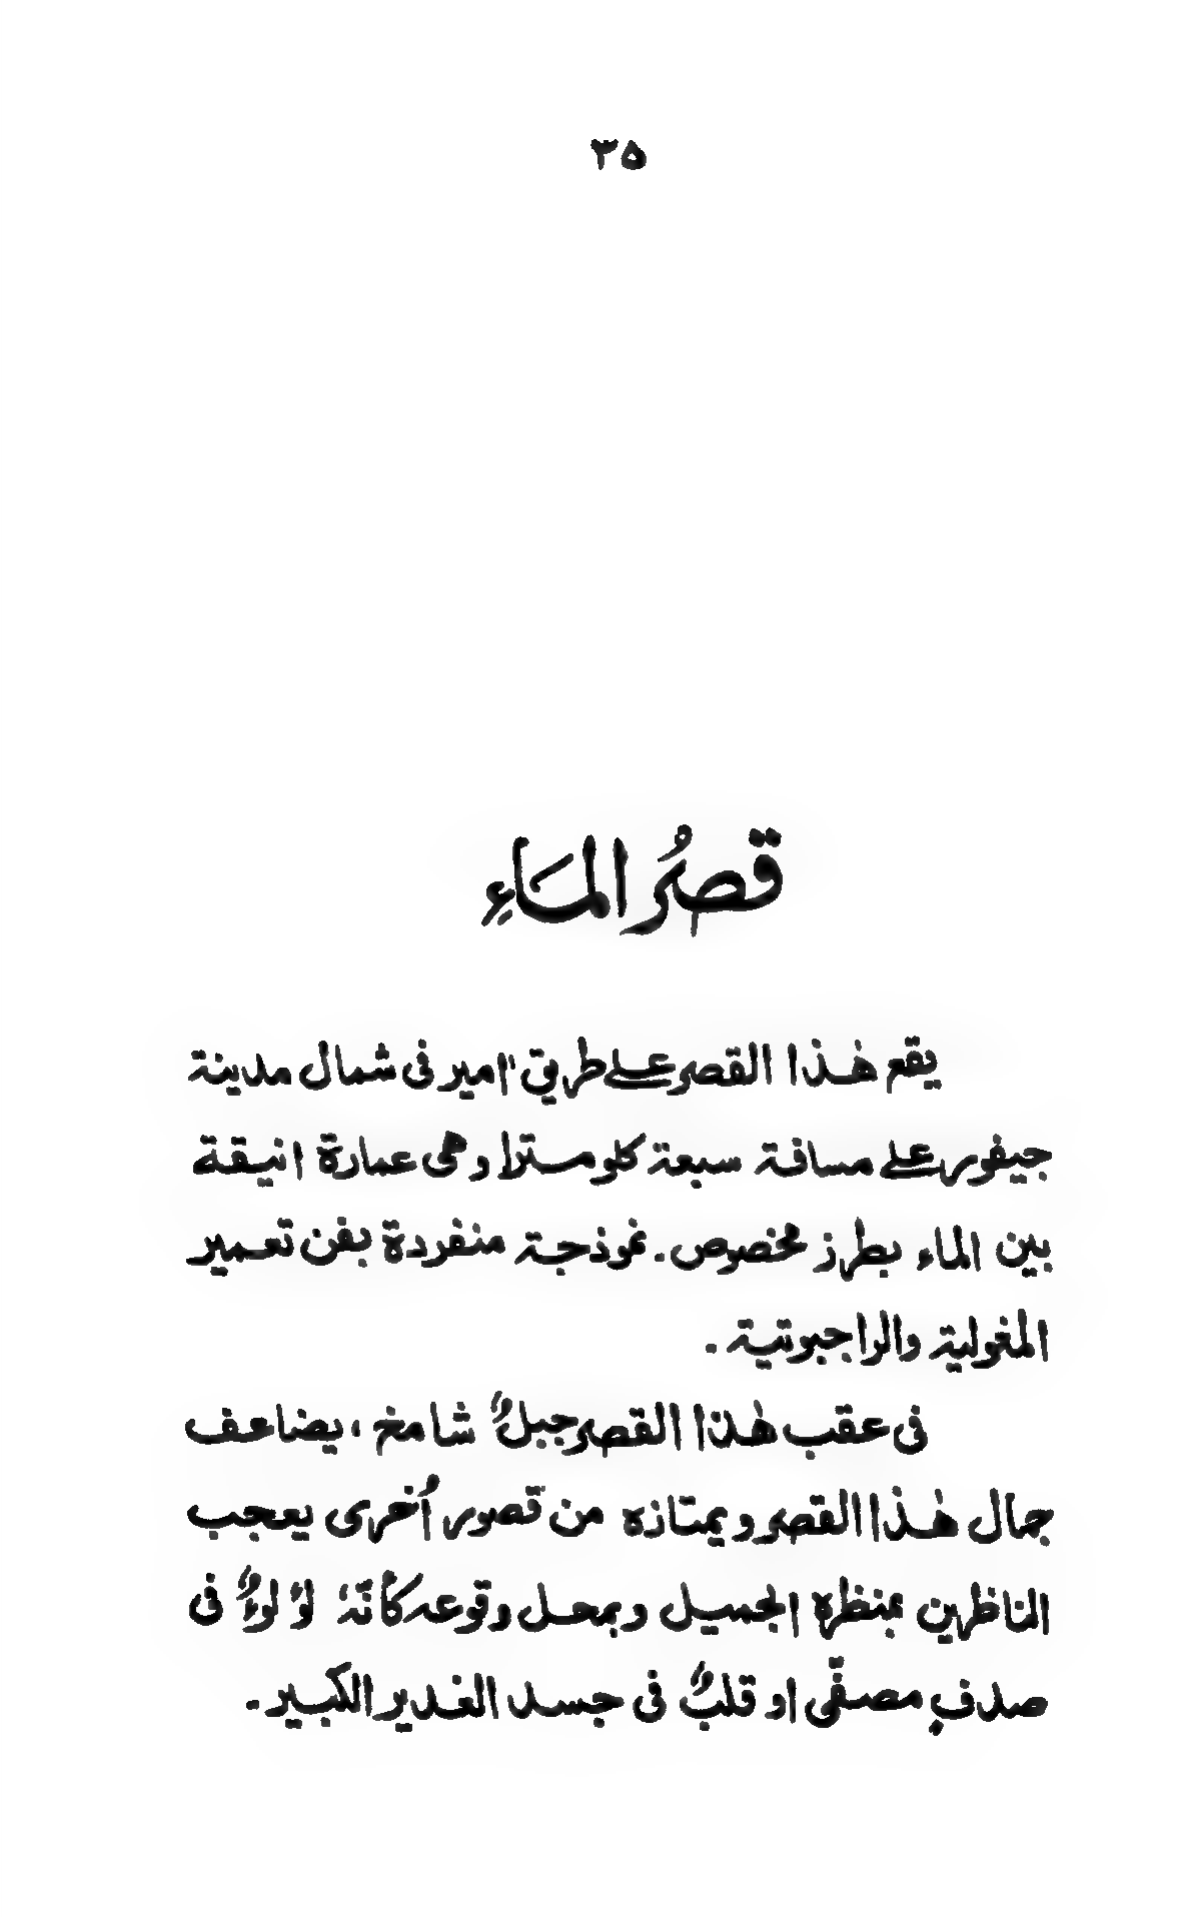 ٣٥
قصرُ الماءِ
يقع هٰذا القصر على طريق "امير فى شمال مدينة
جيفور على مسافة سبعة كلومسترا وهى عمارة انيقة
بين الماء بطرز مخصوص. نموذجة منفردة بفن تعمير
المغولية والراجبوتية.
فى عقب هٰذا القصر جبلٌ شامخ، يضاعف
جمال هٰذا القصر ويمتازه من قصور أُخرى يعجب
الناظرين بمنظره الجميل وبمحل وقوعه كأنّهٗ لؤلوءٌ فى
صدفٍ مصفّى او قلبٌ فى جسد الغدير الكبير.